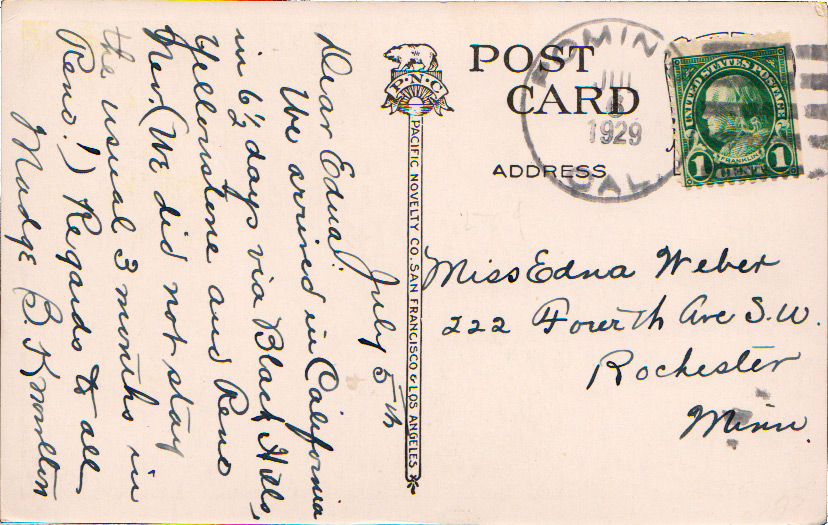 July 5th
Dear Edna:
We arrived in California
in 6½ days via Black Hills,
Yellowstone and Reno
Nev. (We did not stay
the usual 3 months in
Reno!) Regards to all
Madge (B.) Knowlton
P.N.C.
PACIFIC NOVELTY CO. SAN FRANCISCO & LOS ANGELES
POST
CARD
ADDRESS
JUL
1929
CAL.
UNITED STATES POSTAGE
FRANKLIN
1 CENT 1
Miss Edna Weber
222 Fourth Ave S.W.
Rochester
Minn.